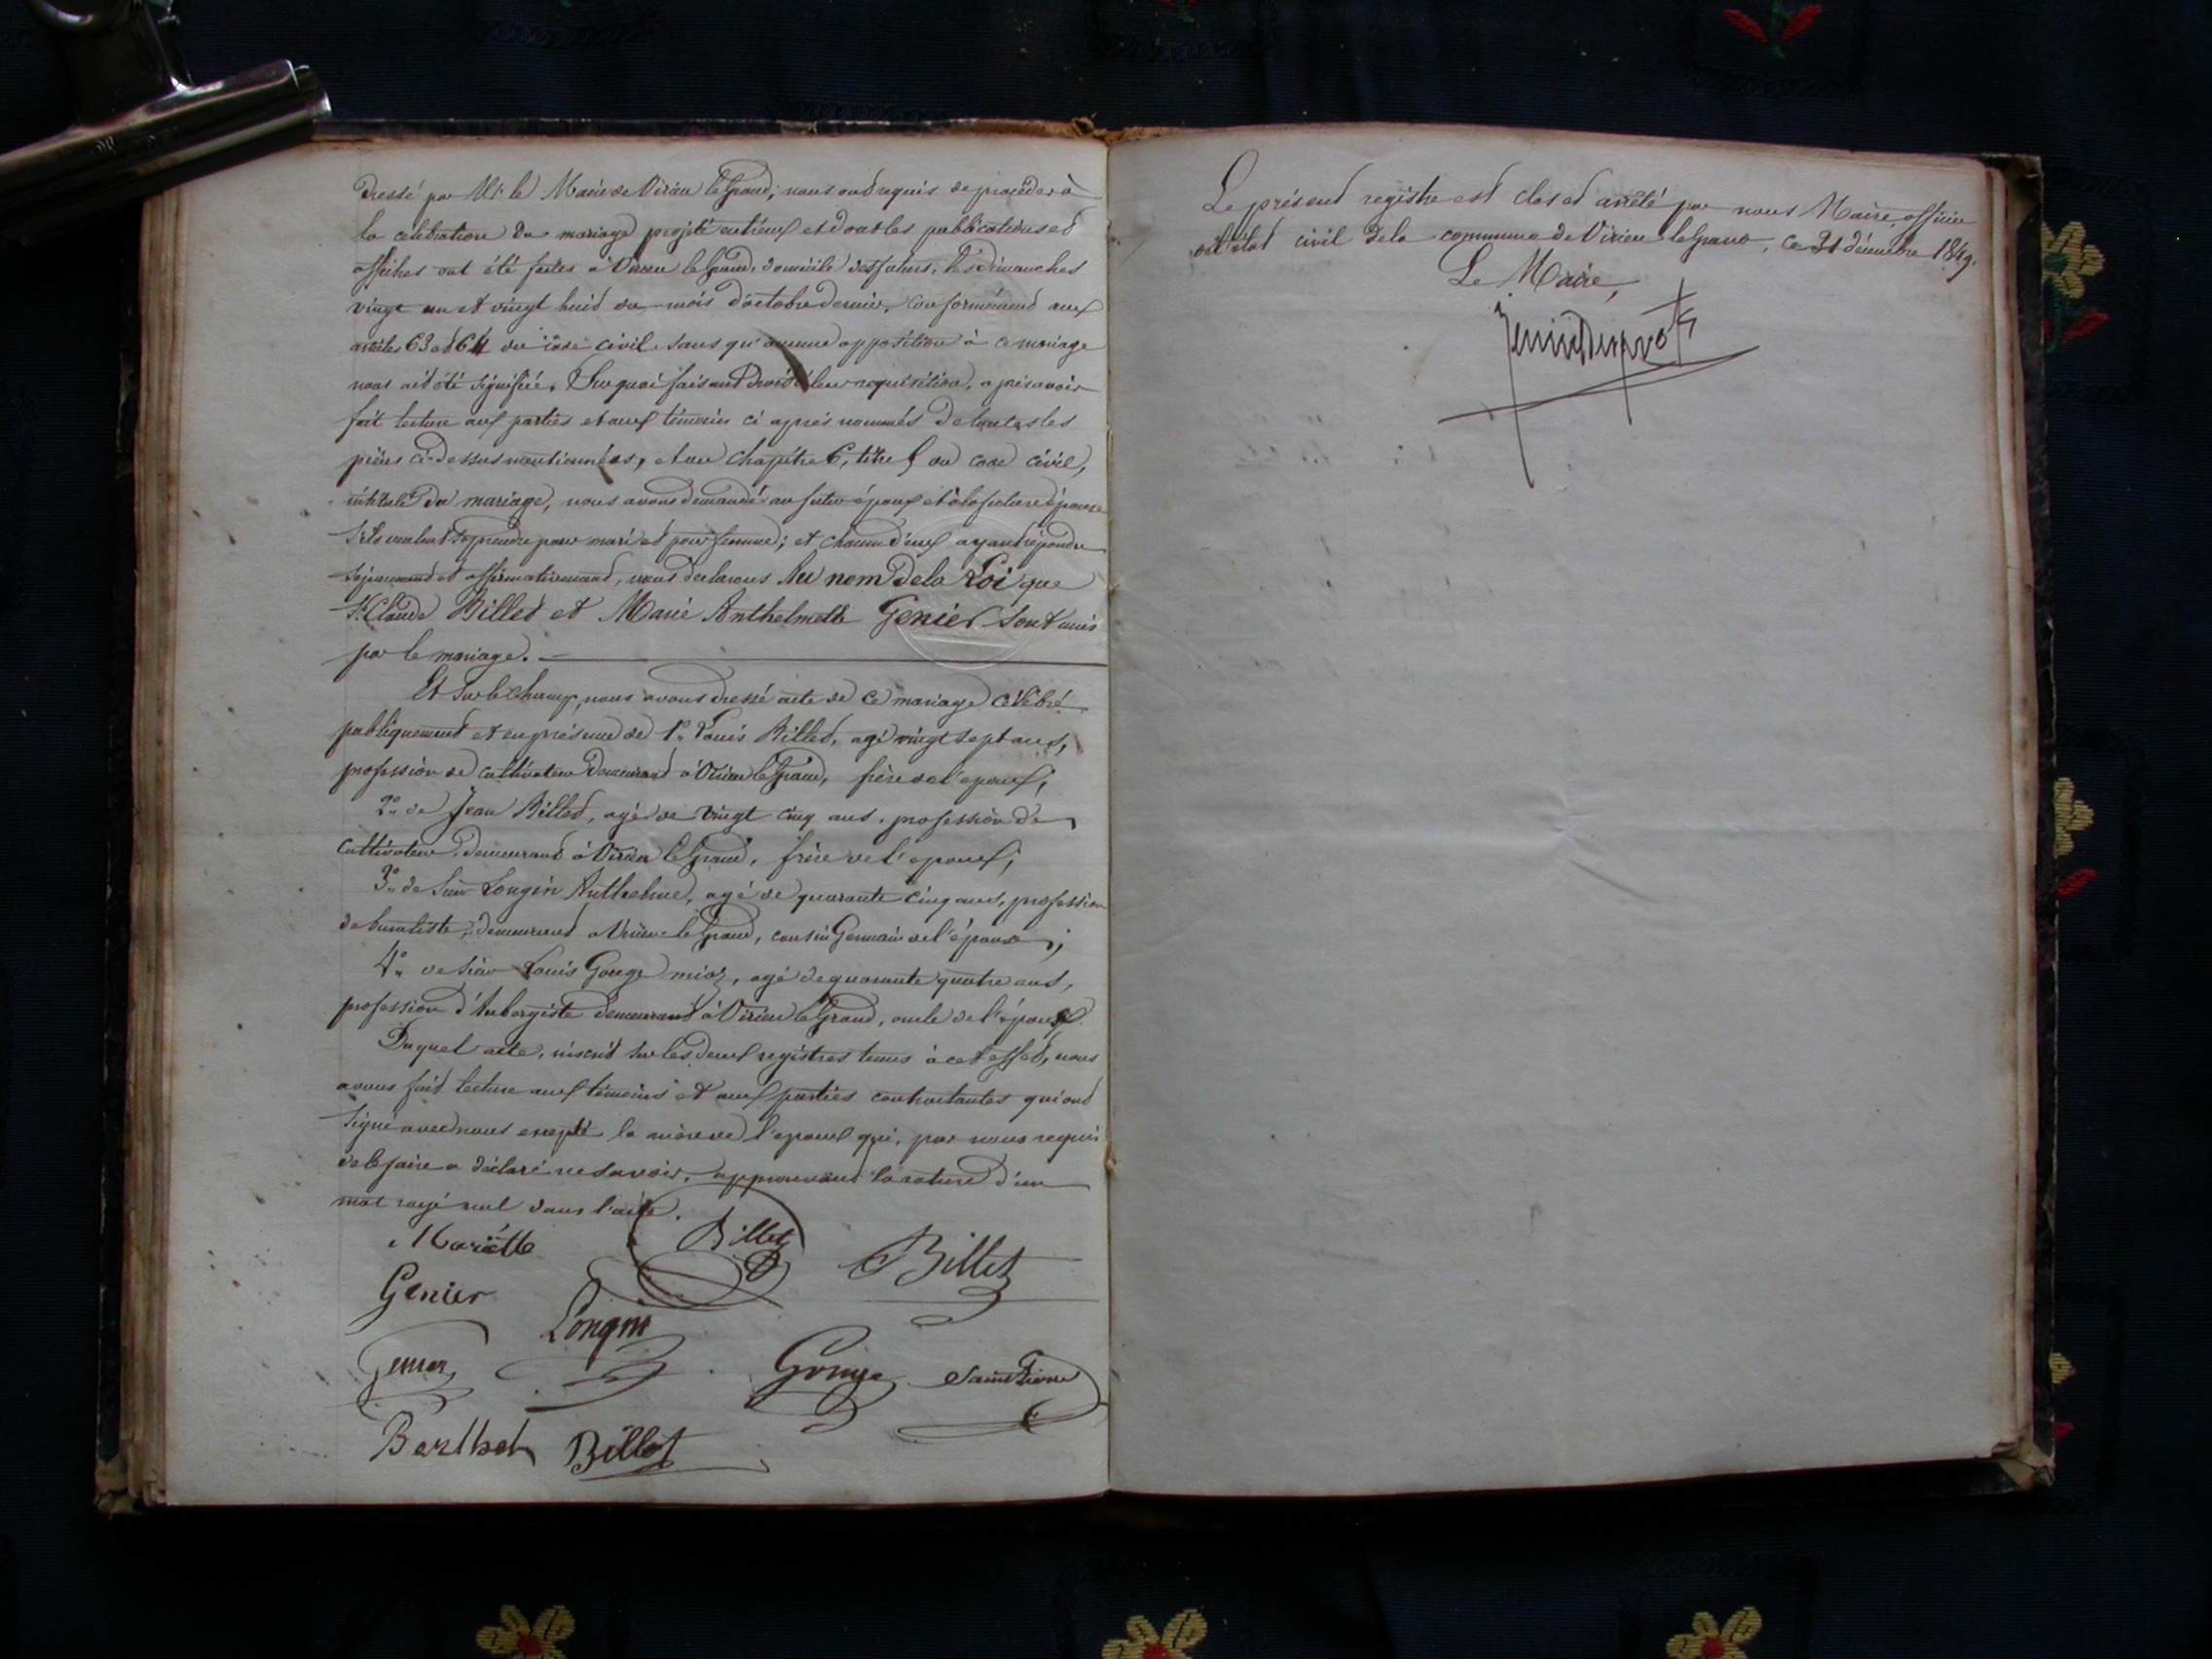 Dressé par Mr. le Maire de Virieu le Grand, nous ont requis de procéder à
la celebration du mariage projeté entr'eux et dont les publications et
affiches ont été faites à Virieu le Grand, domicile des futurs, les dimanches
vingt un et vingt huit du mois d'octobre dernier, conformément aux
articles 63 et 64 du code civil, sans qu'aucune opposition à ce mariage
nous ait été signifiée. Sur quoi faisant droit à leur requisition, après avoir
fait lecture aux parties et aux témoins ci après nommés de toutes les
pièces ci-dessus mentionnées, et du chapitre 6, titre 5 du code civil,
intitulé Du mariage, nous avons demandé au futur époux et à la future épouse
s'ils veulent se prendre pour mari et pour femme; et chacun d'eux ayant répondu
séparement et affirmativement, nous declarons Au nom de la Loi que
Sr. Claude Billet et Marie Anthelmette Genier sont unis
par le mariage.
Et sur le champ, nous avons dressé acte de ce mariage célébré
publiquement et en présence de 1° Louis Billet, agé vingt sept ans,
profession de cultivateur demeurant à Virieu le Grand, frère de l'epoux;
2° de Jean Billet, agé de vingt cinq ans, profession de
cultivateur, demeurant à Virieu le Grand, frère de l'epoux;
3° de Sieur Longin Anthelme, agé de quarante cinq ans, profession
de buraliste, demeurant à Virieu le Grand, cousin Germain de l'épouse;
4° de Sieur Louis Gouge , agé de quarante quatre ans,
profession d'Aubergiste demeurant à Virieu le Grand, oncle de l'époux.
Duquel acte, inscrit sur les deux registres tenus à cet effet, nous
avons fait lecture aux témoins et aux parties contractantes qui ont
signé avec nous excepté la mère de l'epoux qui, par nous requis
de le faire a déclaré ne savoir, approuvant la rature d'un
mot rayé nul dans l'acte.
Mariette Billet Billet
Genier
Longin
Genier Gouge
Berthet Billet
Le présent registre est clos et arrêté par nous Maire, officier
de l'état civil de la commune de Virieu le Grand, ce 31 décembre 1849.
Le Maire,